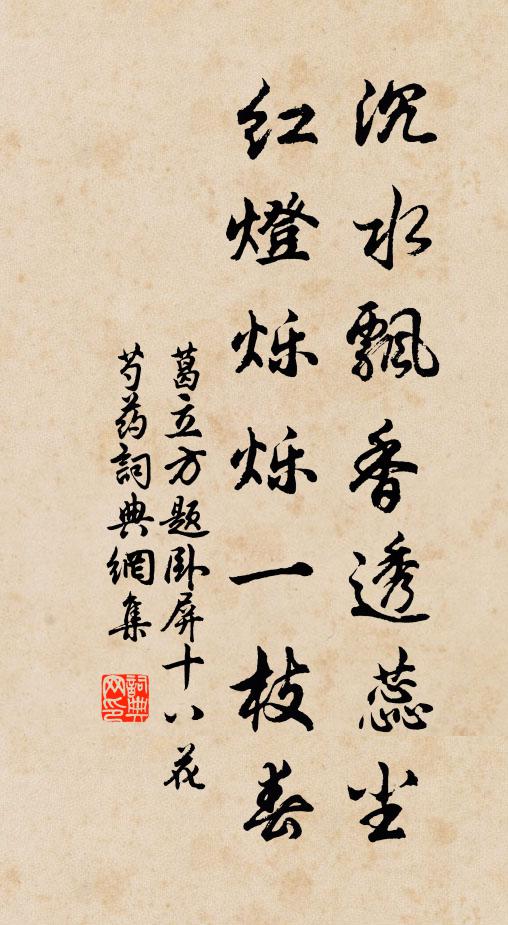 沉水飄香透蕊尘
红燈烁烁一枝春
葛立方题卧屏十八花
芍药詞典網集
詞典网印